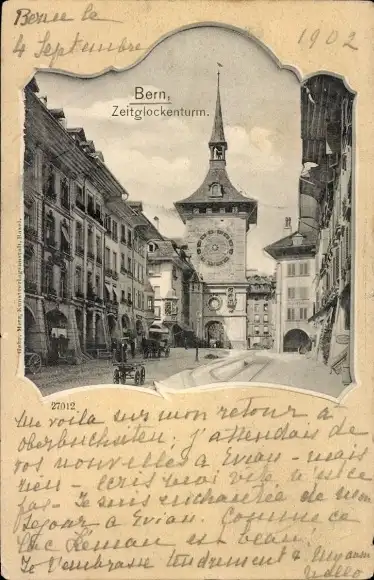 Berne le
4 Septembre 1902
Bern,
Zeitglockenturm.
Gebr. Metz, Kunstverlagsanstalt, Basel.
27012
Me voilà sur mon retour à
oberbuchsiten, j'attendais de
vos nouvelles à Evian - mais
rien - Ecris moi vite n'est ce
pas - Je suis enchantée de mon
séjour à Evian. Comme ce
lac Léman est beau!
Je t'embrasse tendrement &